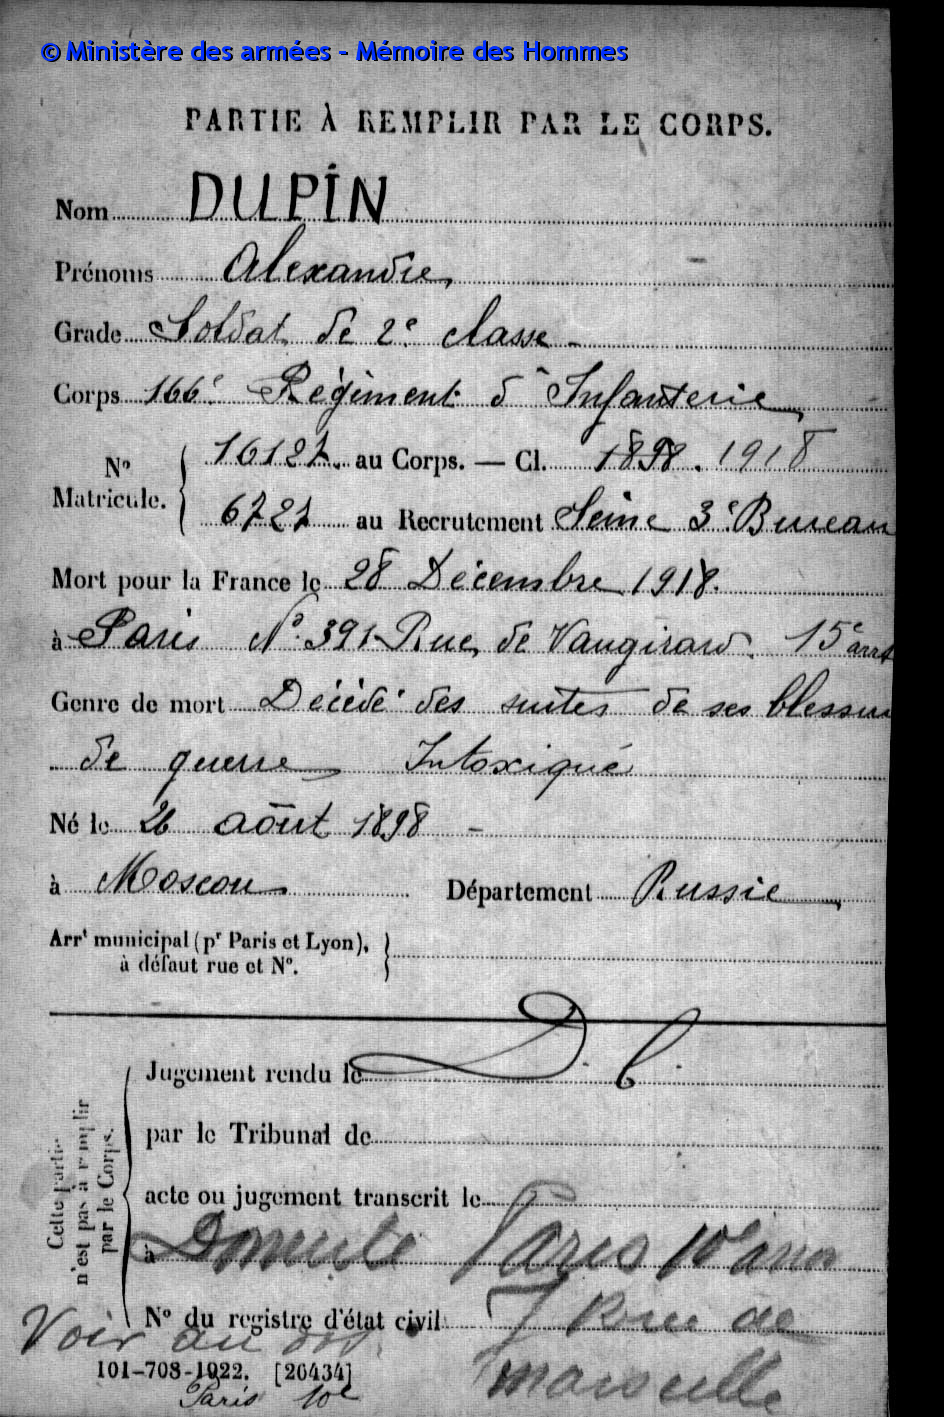 © Ministère des armées - Mémoire des Hommes
PARTIE À REMPLIR PAR LE CORPS.
Nom DUPIN
Prénoms Alexandre
Grade Soldat de 2e classe
Corps 166e Régiment d'Infanterie
No Matricule. 16127 au Corps. — Cl. 1898. 1918
6727 au Recrutement Seine 3e Bureau
Mort pour la France le 28 Décembre 1918.
à Paris No. 391 Rue de Vaugirard. 15e arrt
Genre de mort Décédé des suites de ses blessu
de guerre Intoxiqué
Né le 26 août 1898 -
à Moscou Département Russie
Arrt municipal (pr Paris et Lyon), à défaut rue et No.
Cette partie n'est pas à remplir par le Corps.
Jugement rendu le D. C.
par le Tribunal de
acte ou jugement transcrit le
à Domicile Paris 10e arr
No du registre d'état civil 7 Rue de
Voir au dos.
Marseille
101-708-1922. [26434]
Paris 10e